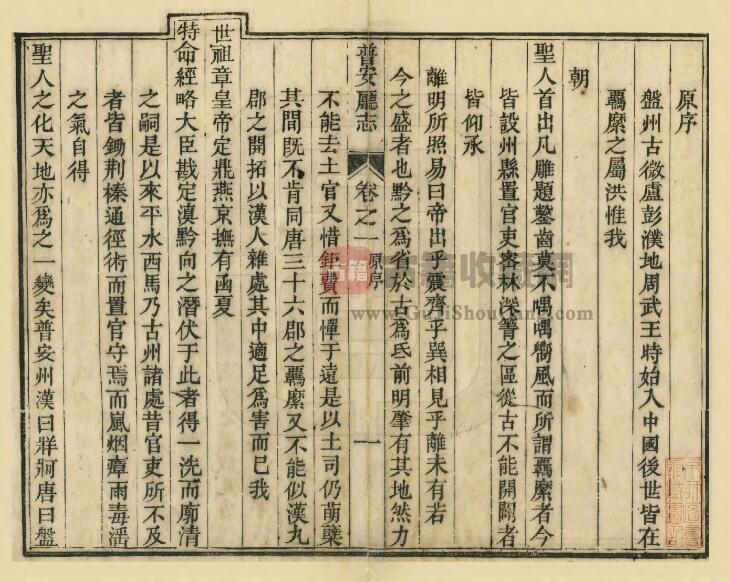 原序
盤州古微盧彭濮地周武王時始入中國後世皆在
羈縻之屬洪惟我
朝
聖人首出凡雕題鑿齒莫不喁喁嚮風而所謂羈縻者今
皆設州縣置官吏密林深箐之區從古不能開闢者
皆仰承
離明所照易曰帝出乎震齊乎巽相見乎離未有若
今之盛者也黔之為省於古為氐前明肇有其地然力
普安廳志 卷之一 原序 一
不能去土官又惜鉅費而憚于遠是以土司仍萌櫱
其間既不肯同唐三十六郡之羈縻又不能似漢九
郡之開拓以漢人雜處其中適足為害而已我
世祖章皇帝定鼎燕京撫有函夏
特命經略大臣戡定滇黔向之潛伏于此者得一洗而廓清
之嗣是以來平水西馬乃古州諸處昔官吏所不及
者皆鋤荆榛通徑術而置官守焉而嵐烟瘴雨毒淫
之氣自得
聖人之化天地亦為之一變矣普安州漢曰牂牁唐曰盤
古籍收藏網
www.GujiShouCang.com